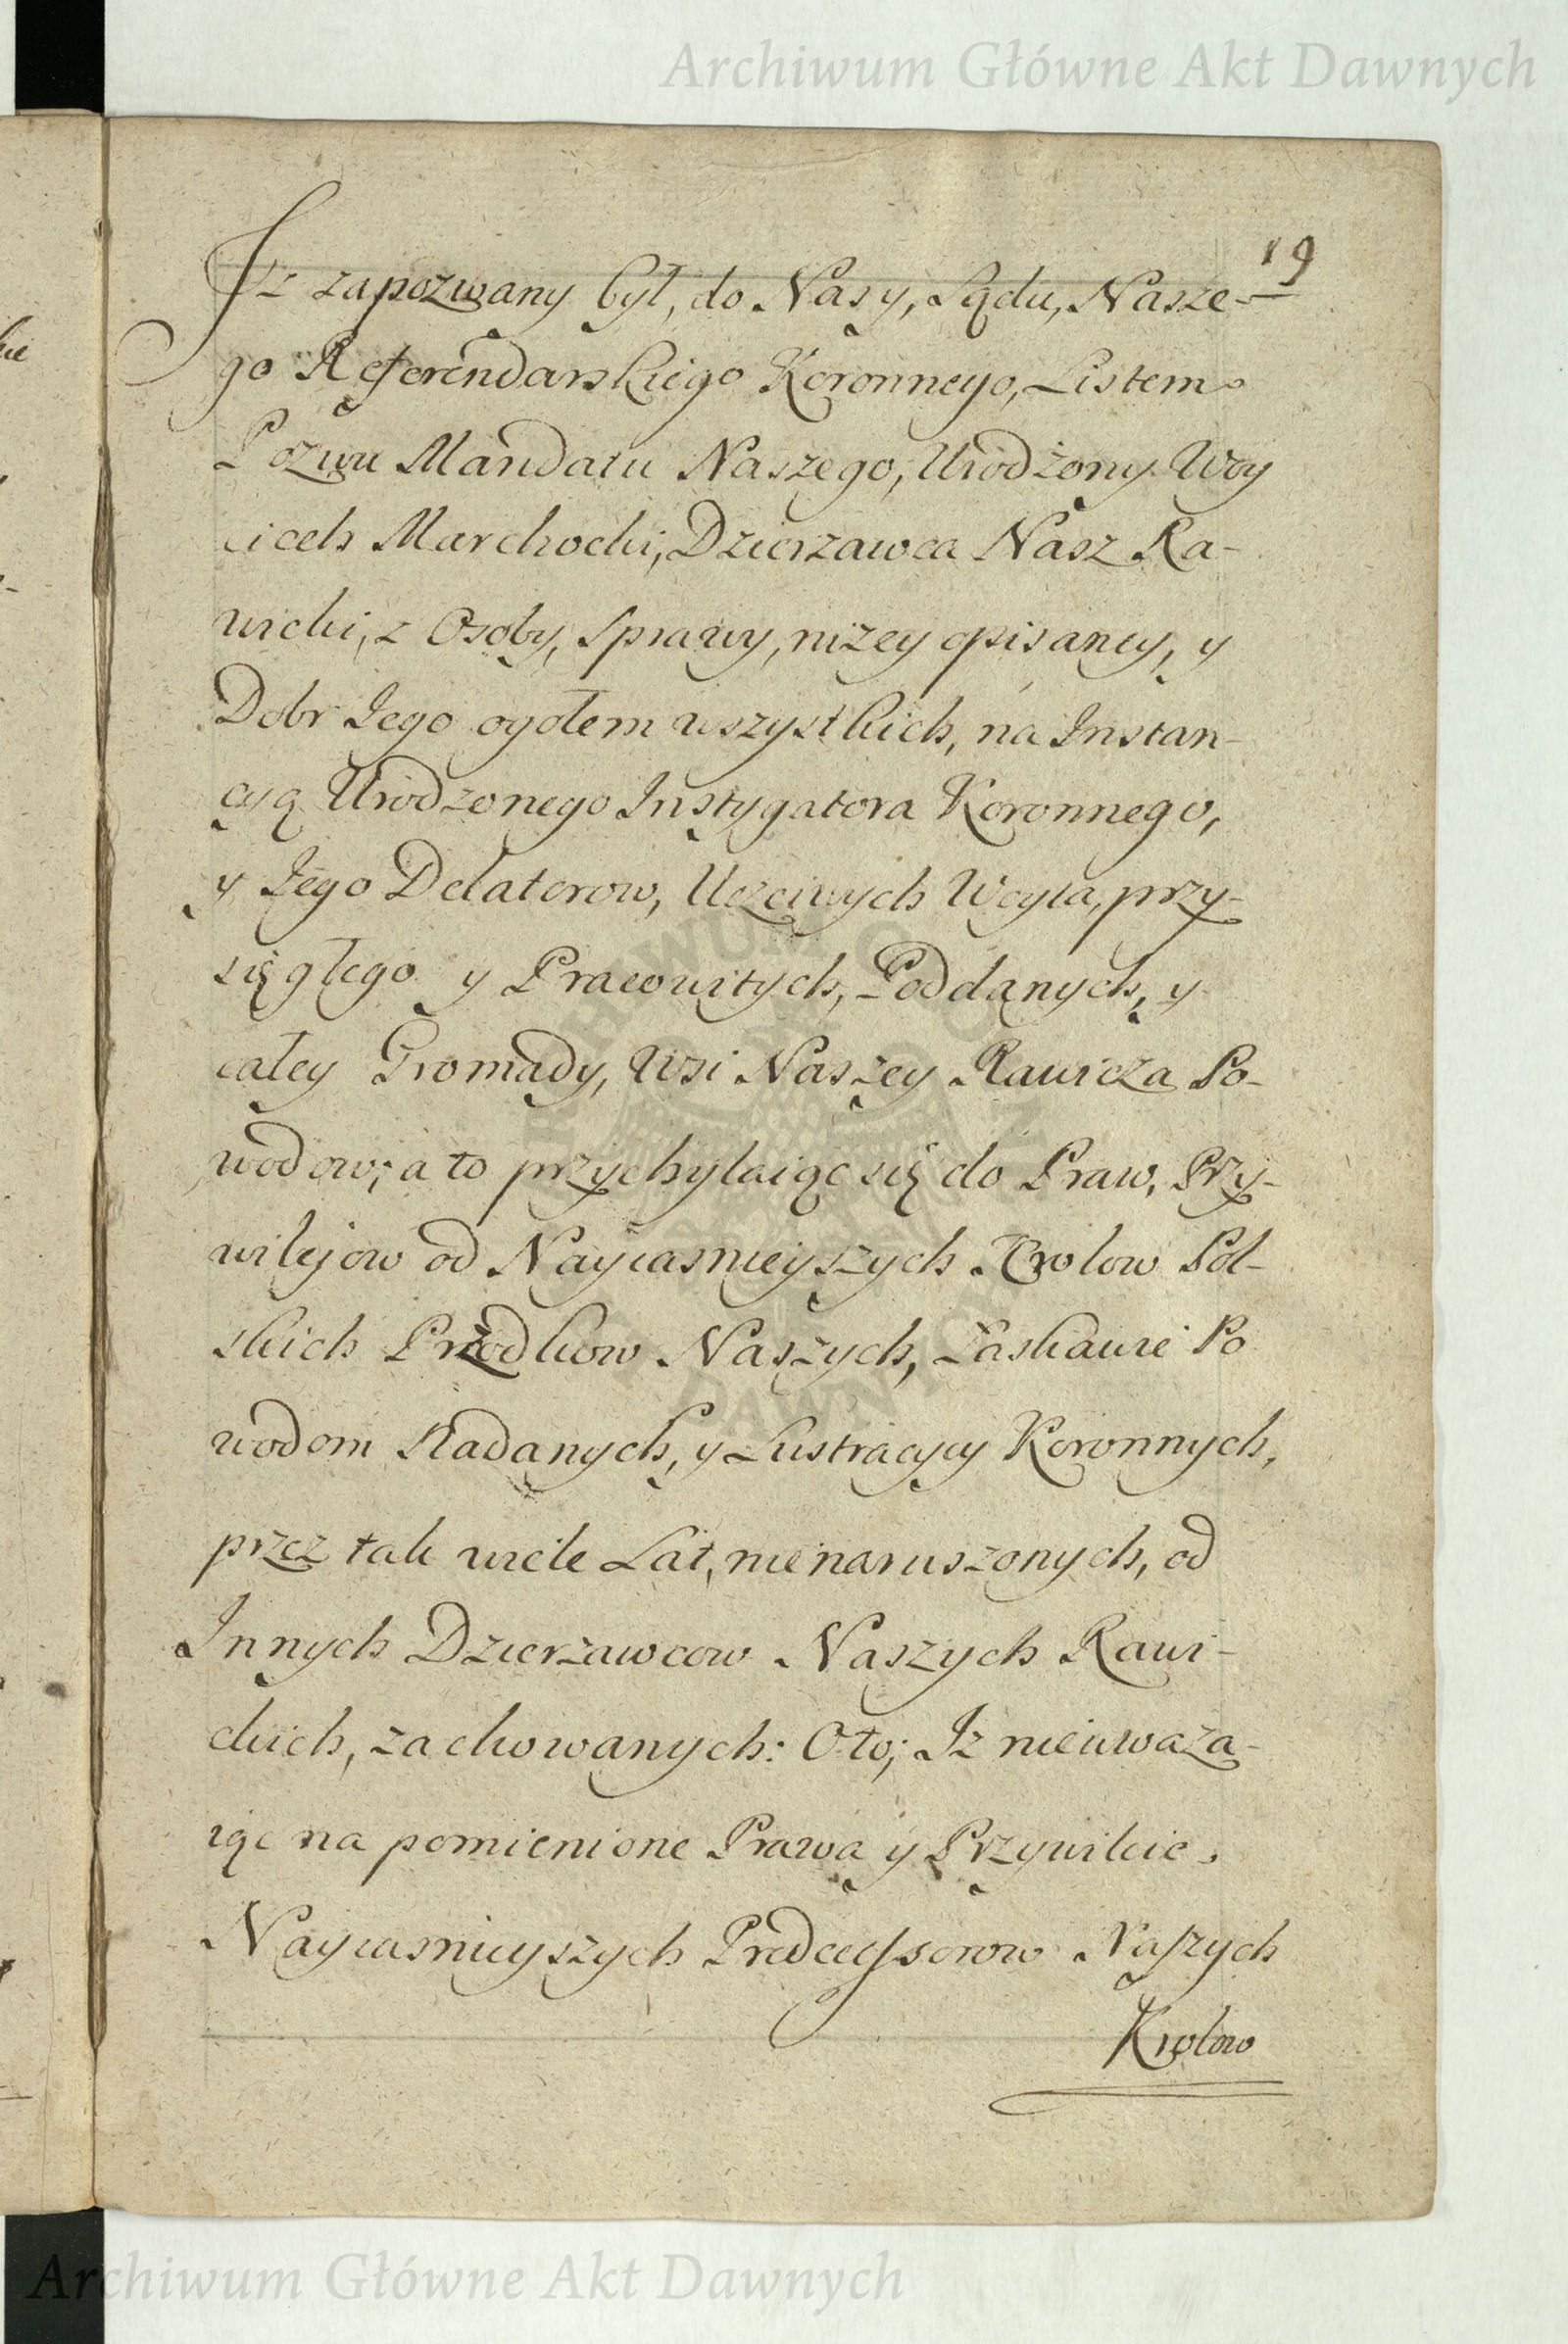 Archiwum Główne Akt Dawnych
19
Iż zapozwany był, do Nasy, Sądu, Nasze-
go Referendarskiego Koronnego, Listem
Pozwu Mandatu Naszego, Urodzony Woy
ciech Marchocki, Dzierzawca Nasz Ra-
wicki, z Osoby, Sprawy, niżey opisaney, y
Dobr Jego ogołem wszystkich, na Instan-
cyą Urodzonego Instygatora Koronnego,
y Jego Delatorow, Uczciwych Woyta, przy-
sięgłego y Pracowitych, Poddanych, y
całey Gromady, Wsi Naszey Rawicza Po-
wodow; a to przychylaiąc się do Praw, Przy-
wilejow od Nayiasnieyszych Krolow Pol-
skich Przodkow Naszych, Łaskawie Po
wodom Nadanych, y Lustracyey Koronnych,
przez tak wiele Lat, nienaruszonych, od
Innych Dzierzawcow Naszych Rawi-
ckich, zachowanych: Oto; Iż nieuważa-
iąc na pomienione Prawa y Przywileie
Nayiasnieyszych Predecessorow Naszych
Krolow
Archiwum Główne Akt Dawnych